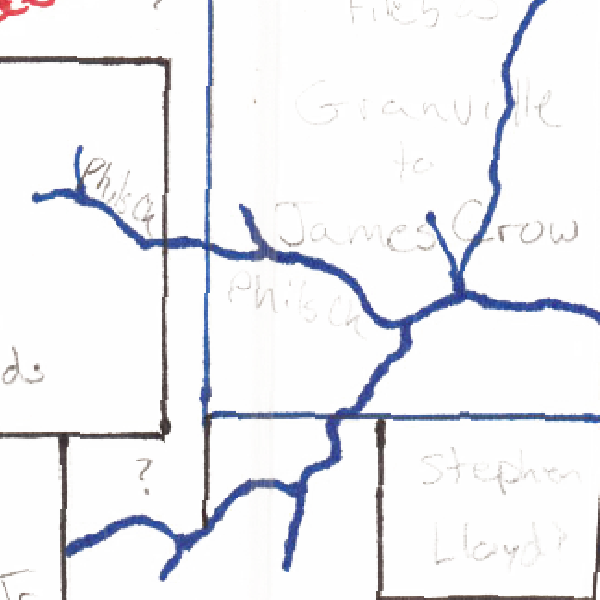 Granville
to
James Crow
Phils Ch
Phils Ch
?
Stephen
Lloyd?